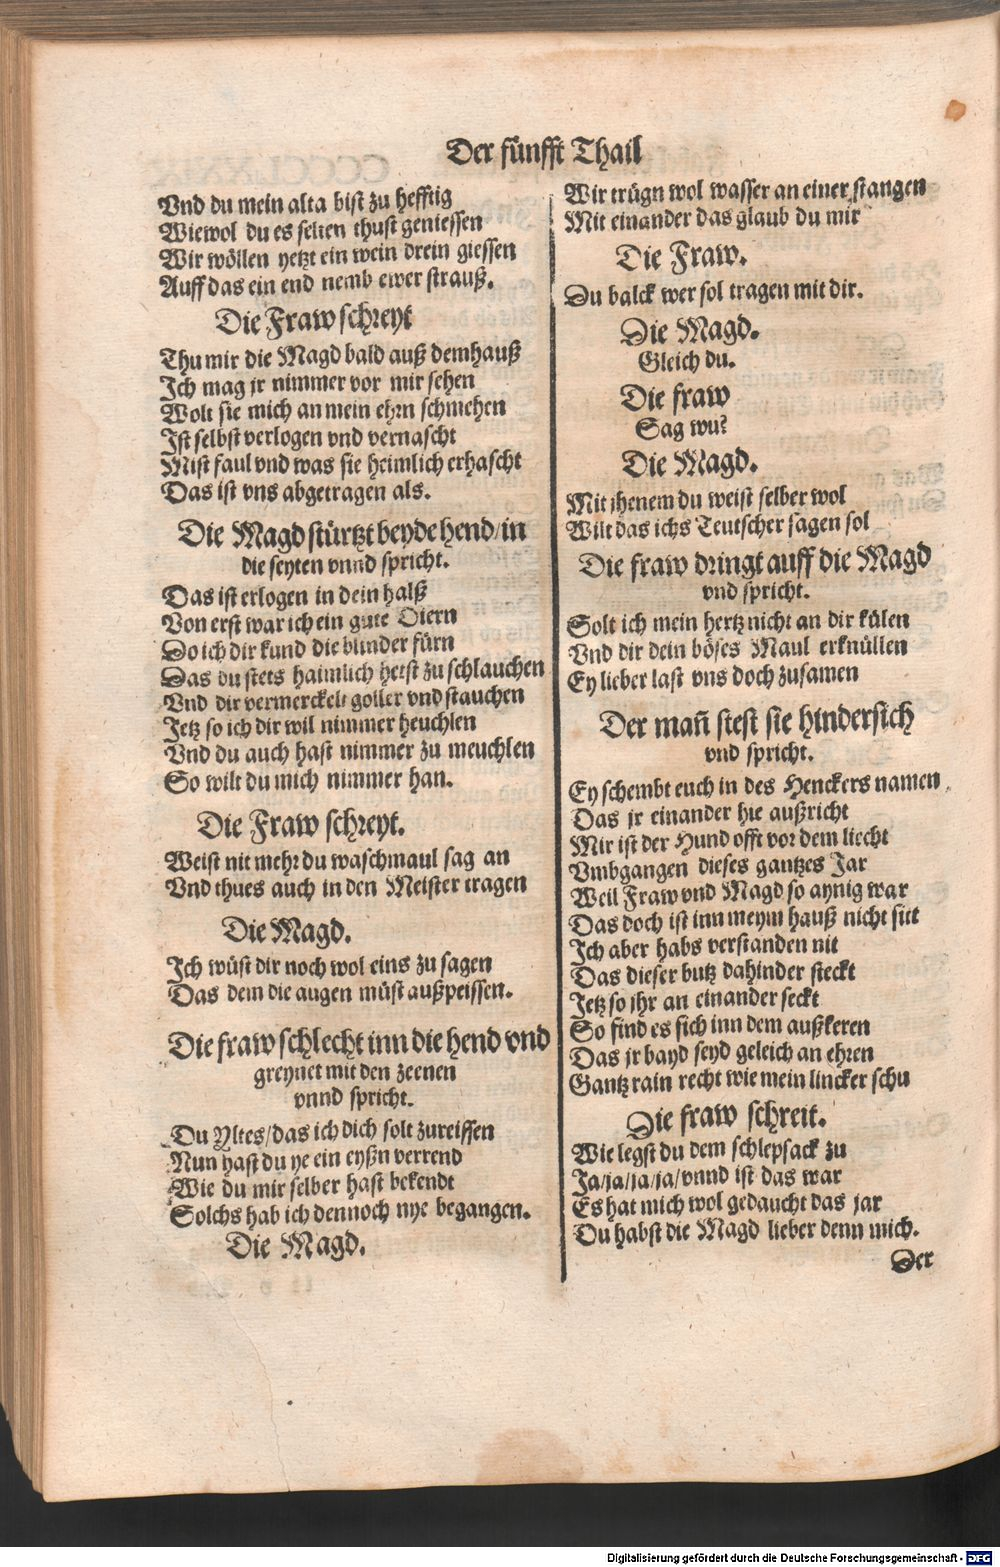 Der fünfft Thail
Vnd du mein alta bist zu hefftig
Wiewol du es selten thust geniessen
Wir wöllen yetzt ein wein drein giessen
Auff das ein end nemb ewer strauß.
Die Fraw schreyt
Thu mir die Magd bald auß dem hauß
Ich mag jr nimmer vor mir sehen
Wolt sie mich an mein ehrn schmehen
Ist selbst verlogen vnd vernascht
Mist faul vnd was sie heimlich erhascht
Das ist vns abgetragen als.
Die Magd stürtzt beyde hend/in
die seyten vnnd spricht.
Das ist erlogen in dein halß
Von erst war ich ein gute Diern
Do ich dir kund die blinder fürn
Das du stets haimlich hetst zu schlauchen
Vnd dir vermerckelt goller vnd stauchen
Jetz so ich dir wil nimmer heuchlen
Vnd du auch hast nimmer zu meuchlen
So wilt du mich nimmer han.
Die Fraw schreyt.
Weist nit mehr du waschmaul sag an
Vnd thues auch in den Meister tragen
Die Magd.
Ich wüst dir noch wol eins zu sagen
Das dem die augen müst außpeissen.
Die fraw schlecht inn die hend vnd
greynet mit den zeenen
vnnd spricht.
Du Yltes/das ich dich solt zureissen
Nun hast du ye ein eyßn verrend
Wie du mir selber hast bekendt
Solchs hab ich dennoch nye begangen.
Die Magd.
Wir trügn wol wasser an einer stangen
Mit einander das glaub du mir
Die Fraw.
Du balck wer sol tragen mit dir.
Die Magd.
Gleich du.
Die fraw
Sag wu?
Die Magd.
Mit jhenem du weist selber wol
Wilt das ichs Teutscher sagen sol
Die fraw dringt auff die Magd
vnd spricht.
Solt ich mein hertz nicht an dir külen
Vnd dir dein böses Maul erknüllen
Ey lieber last vns doch zusamen
Der mañ stest sie hindersich
vnd spricht.
Ey schembt euch in des Henckers namen
Das jr einander hie außricht
Mir ist der Hund offt vor dem liecht
Vmbgangen dieses gantzes Jar
Weil Fraw vnd Magd so aynig war
Das doch ist inn meym hauß nicht sitt
Ich aber habs verstanden nit
Das dieser butz dahinder steckt
Jetz so jhr an einander seckt
So find es sich inn dem außkeren
Das jr bayd seyd geleich an ehren
Gantz rain recht wie mein lincker schu
Die fraw schreit.
Wie legst du dem schlepsack zu
Ja/ja/ja/ja/vnnd ist das war
Es hat mich wol gedaucht das jar
Du habst die Magd lieber denn mich.
Der
Digitalisierung gefördert durch die Deutsche Forschungsgemeinschaft - DFG